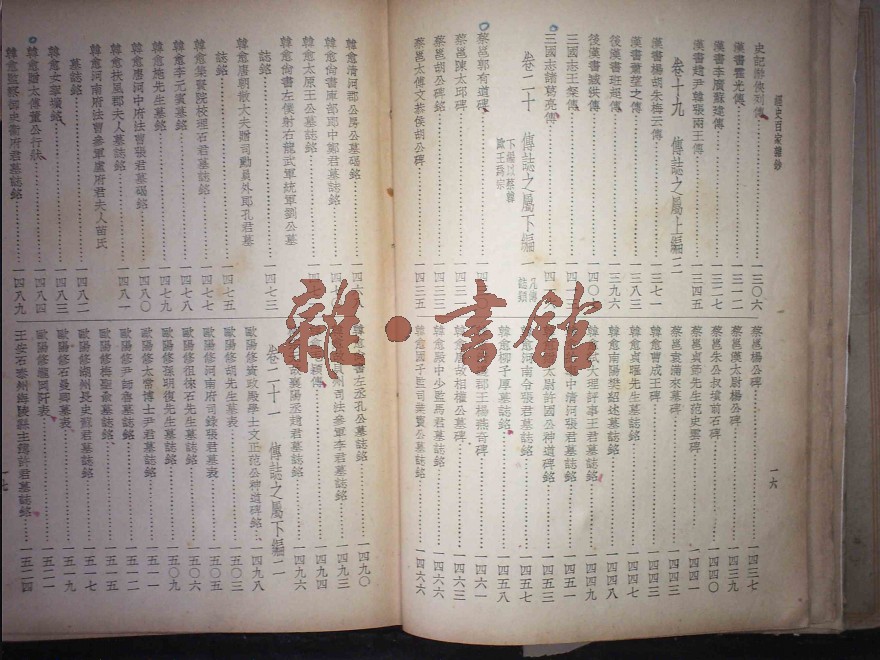 經史百家雜鈔
一六
史記游俠列傳……一三〇六
漢書霍光傳……一三一二
漢書李廣蘇建傳……一三二七
漢書趙尹韓張兩王傳……一三四五
卷十九 傳誌之屬上編二
漢書楊胡朱梅云傳……一三七一
漢書蕭望之傳……一三八三
後漢書班超傳……一三九六
後漢書臧洪傳……一四〇
三國志王粲傳……一四一三
三國志諸葛亮傳……一四
卷二十 傳誌之屬下編
下編以蔡韓
歐王爲宗
蔡邕郭有道碑……一四
蔡邕陳太邱碑……一四三一
蔡邕胡公碑……一四三三
蔡邕太傅文恭侯胡公碑……一四三五
蔡邕楊公碑……一四三七
蔡邕漢太尉楊公碑……一四三九
蔡邕朱公叔墳前石碑……一四四〇
蔡邕貞節先生范史雲碑……一四四一
蔡邕袁滿來墓碑……一四四三
韓愈曹成王碑……一四四三
韓愈貞曜先生墓誌銘……一四四七
韓愈南陽樊紹述墓誌銘……一四四八
韓愈試大理評事王君墓誌銘……一四四九
中清河張君墓誌銘……一四五一
太尉許國公神道碑銘……一四五三
韓愈河南令張君墓誌銘……一四五七
韓愈柳子厚墓誌銘……一四五八
郡王楊燕奇碑……一四六一
故相權公墓碑……一四六三
韓愈殿中少監馬君墓誌銘……一四六六
韓愈國子監司業竇公墓誌銘……一四六六
韓愈清河郡公房公墓碣銘……一四六
韓愈尚書庫部郎中鄭君墓誌銘……一四七
韓愈太原王公墓誌銘……一四七
韓愈尚書左僕射右龍武軍統軍劉公墓
誌銘……一四七三
韓愈唐朝散大夫贈司勳員外郎孔君墓
誌銘……一四七五
韓愈集賢院校理石君墓誌銘……一四七七
韓愈李元賓墓銘……一四七八
韓愈施先生墓銘……一四七九
韓愈唐河中府法曹張君墓碣銘……一四八〇
韓愈扶風郡夫人墓誌銘……一四八一
韓愈河南府法曹參軍盧府君夫人苗氏
墓誌銘……一四八二
韓愈女挐壙銘……一四八三
韓愈贈太傅董公行狀……一四八四
韓愈監察御史衛府君墓誌銘……一四八九
韓愈尚書左丞孔公墓誌銘……一四九〇
司法參軍李君墓誌銘……一四九三
襄陽丞趙君墓誌銘……一四九四
穎傳
卷二十一 傳誌之屬下編二
歐陽修資政殿學士文正范公神道碑銘……一四九八
歐陽修胡先生墓表……一五〇三
歐陽修河南府司錄張君墓表……一五〇五
歐陽修徂徠石先生墓誌銘……一五〇六
歐陽修孫明復先生墓誌銘……一五〇九
歐陽修太常博士尹君墓誌銘……一五一一
歐陽修梅聖俞墓誌銘……一五一二
歐陽修尹師魯墓誌銘……一五一五
歐陽修湖州長史蘇君墓誌銘……一五一七
歐陽修石曼卿墓表……一五一九
歐陽修瀧岡阡表……一五二一
王安石泰州海陵縣主簿許君墓誌銘……一五二四
一七
雜·書館